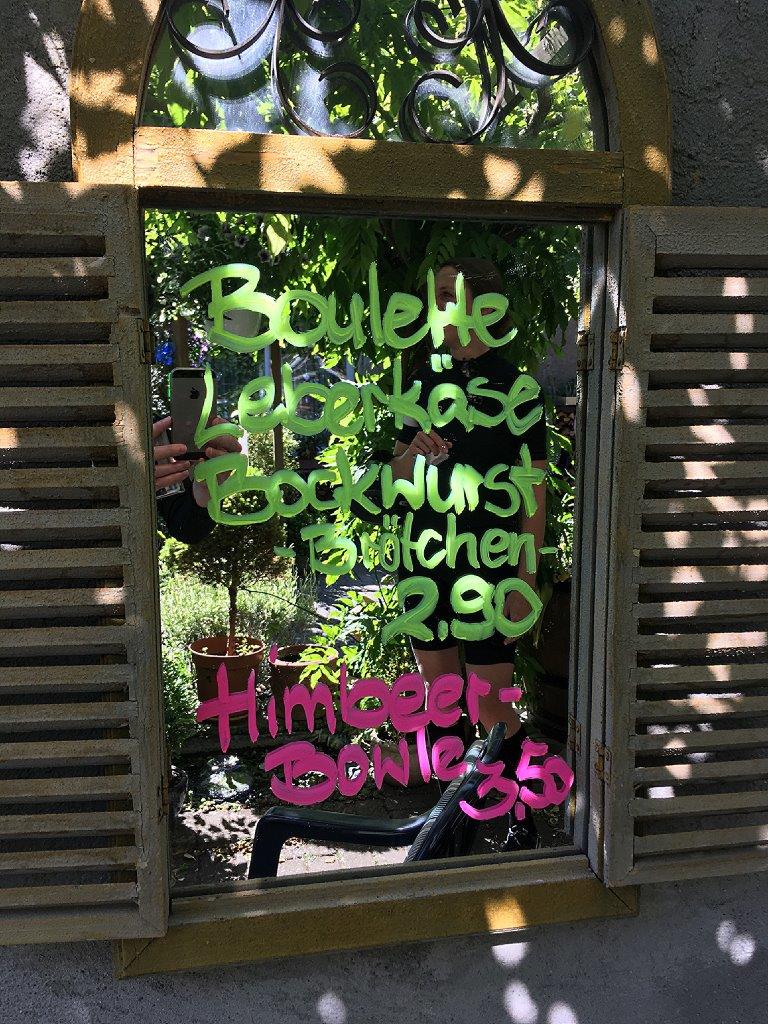 Boulette
Leberkäse
Bockwurst
-Brötchen-
2.90
Himbeer-
Bowle 3,50